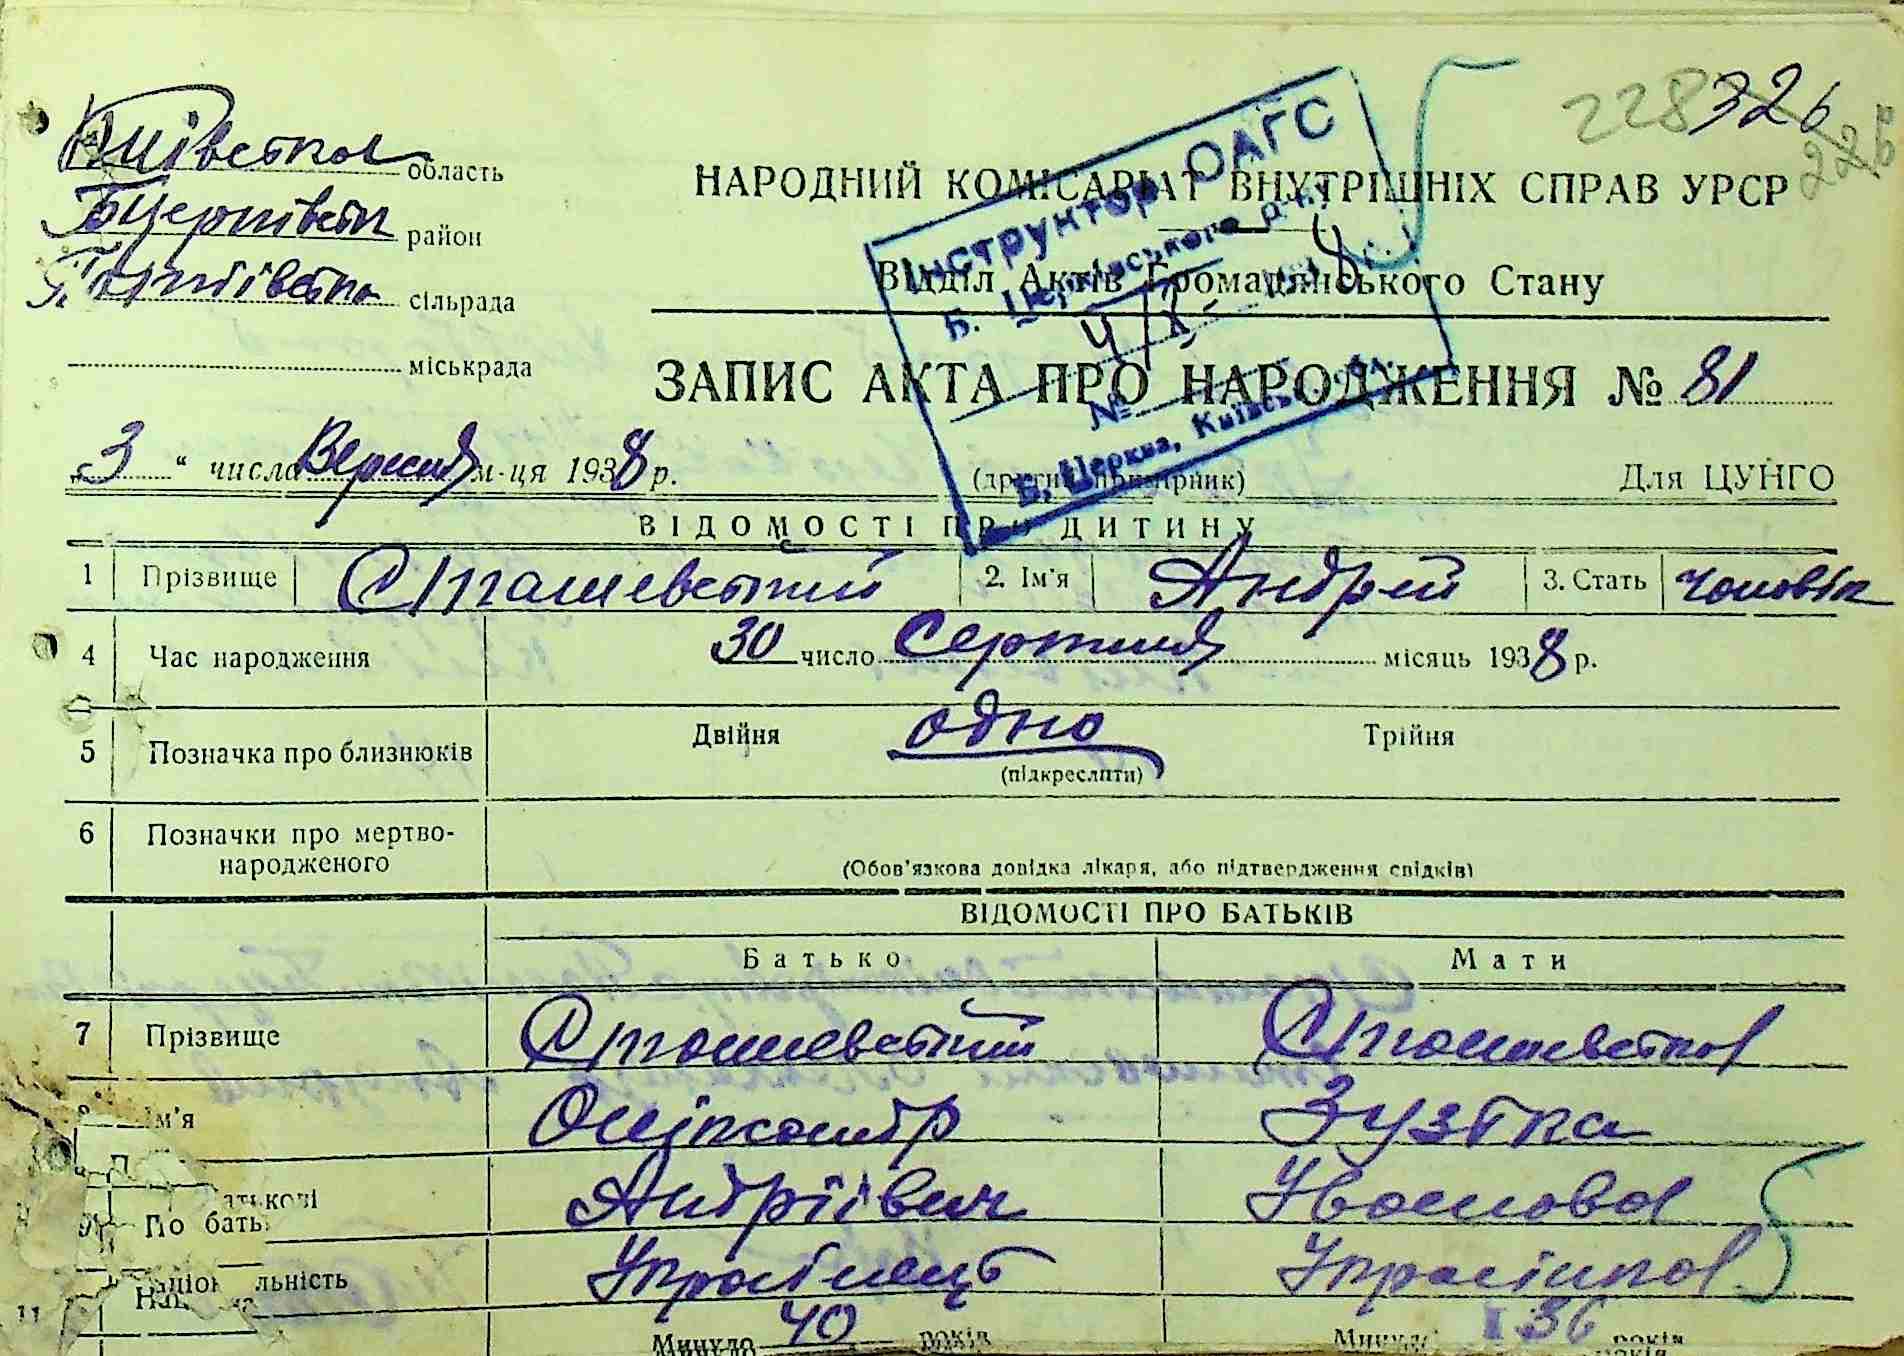 228 326
226
Київська область
Б Церківськ район
сільрада
міськрада
НАРОДНИЙ КОМІСАРІАТ ВНУТРІШНІХ СПРАВ УРСР
Відділ Актів Громадянського Стану
Інструктор ОАГС
Б. Церківського р-ну
4/X
№
Б. Церква, Київськ.
ЗАПИС АКТА ПРО НАРОДЖЕННЯ № 81
"3" числа Вересня м-ця 1938 р.
(другий примірник)
Для ЦУНГО
ВІДОМОСТІ ПРО ДИТИНУ
1 Прізвище Сташевський 2. Ім'я Андрей 3. Стать чоловік
4 Час народження 30 число Серпня місяць 1938 р.
5 Позначка про близнюків Двійня одно Трійня
(підкреслити)
6 Позначки про мертво-
народженого
(Обов'язкова довідка лікаря, або підтвердження свідків)
ВІДОМОСТІ ПРО БАТЬКІВ
Батько Мати
7 Прізвище Сташевський Сташевська
Ім'я Олександр
По батькові Андріївич Івановна
Національність Українець Українка
11 Минуло 40 років Минуло 36 років